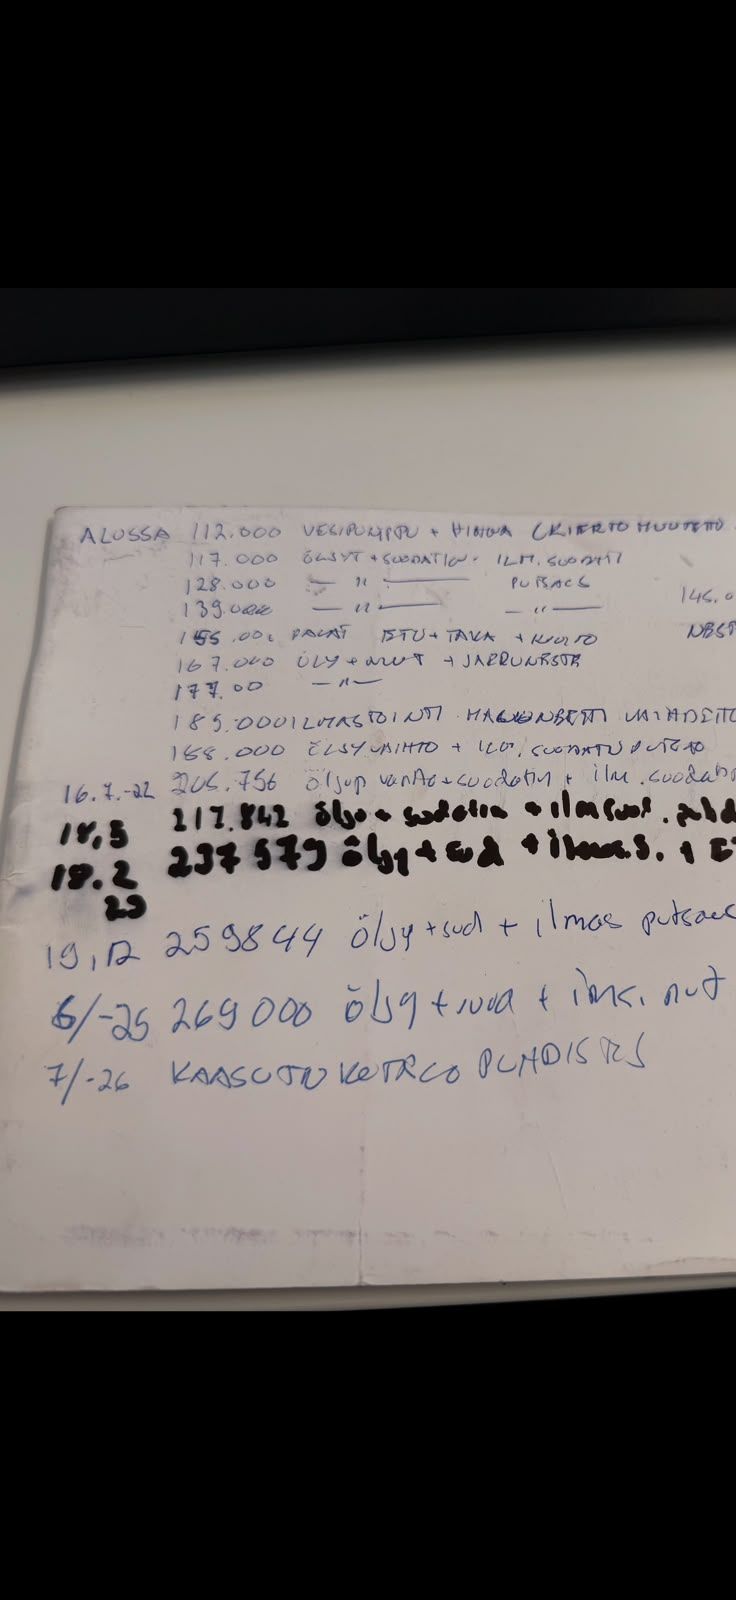 ALUSSA 112.000 VESIPUMPPU + HIHNA (KIERTO MUUTETTU
117.000 ÖLJYT + SUODATIN - ILM. SUODATTI
128.000 — " — PUTSAUS
139.000 — " — — " —
145.0
155.000 PALAT ETU + TAKA +
167.000 ÖLY + MUUT + JARRUNESTE
177.00 — " —
185.000 ILMASTOINTI MAGNEETTI VAIHDETTU
188.000 ÖLJYVAIHTO + ILM. SUODATIN PUTSAO
16.7.-22 205.756 öljyn vaihto + suodatin + ilm. suodatin
18.5 217.842 öljy + suodatin + ilmsuod.
18.2 237579 öljy + sud +
23
19.12 259844 öljy + sud + ilmas putsaus
6/-25 269000 öljy + suod + muut
7/-26 KAASUTIN KOTELO PUHDISTUS